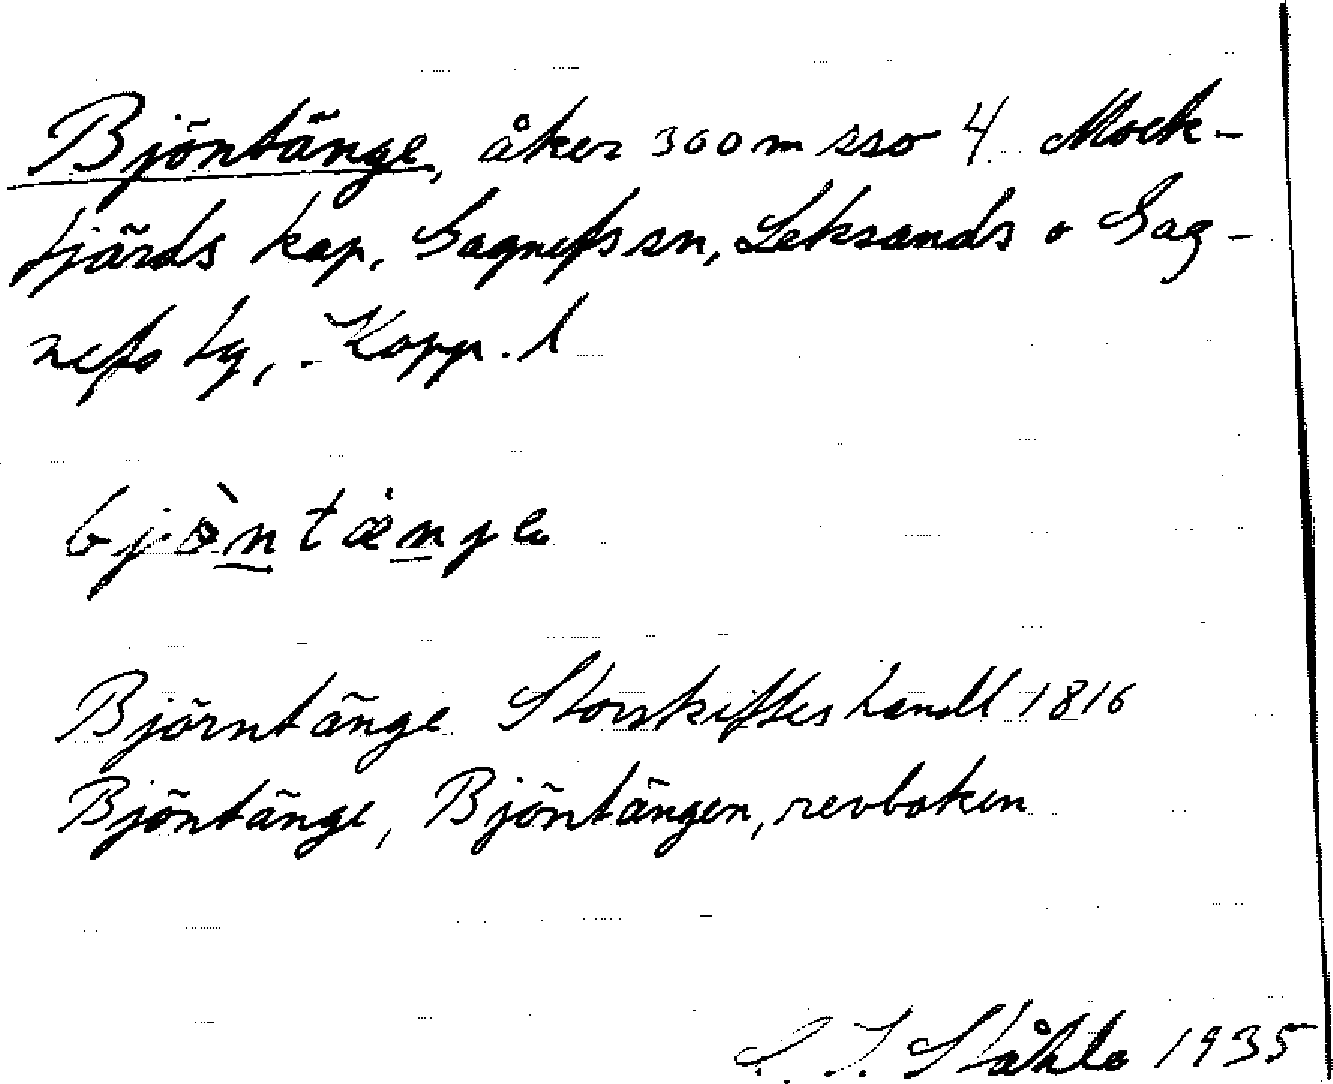 Bjöntänge, åker 300 m sso 4. Mock-
fjärds kap, Gagnefs sn, Leksands o Gag-
nefs tg, Kopp. l
bjòntænge
Björntänge Storskifteshandl 1816
Bjöntänge, Bjöntängen, revboken
C. I. Ståhle 1935